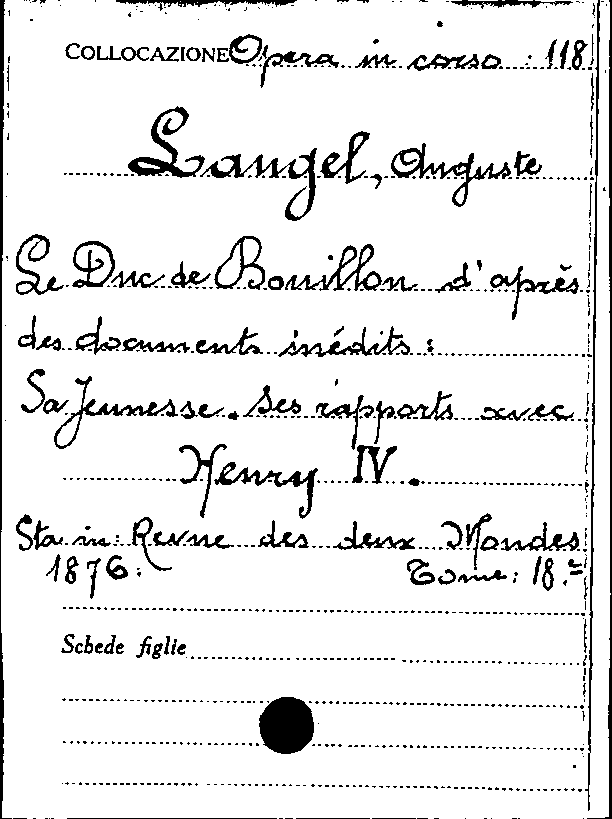 COLLOCAZIONE Opera in corso : 118
Laugel, Auguste
Le Duc de Bouillon d'après
des documents inédits :
Sa Jeunesse. Ses rapports avec
Henry IV.
Sta in: Revue des deux Mondes
1876. Tome: 18.
Schede figlie